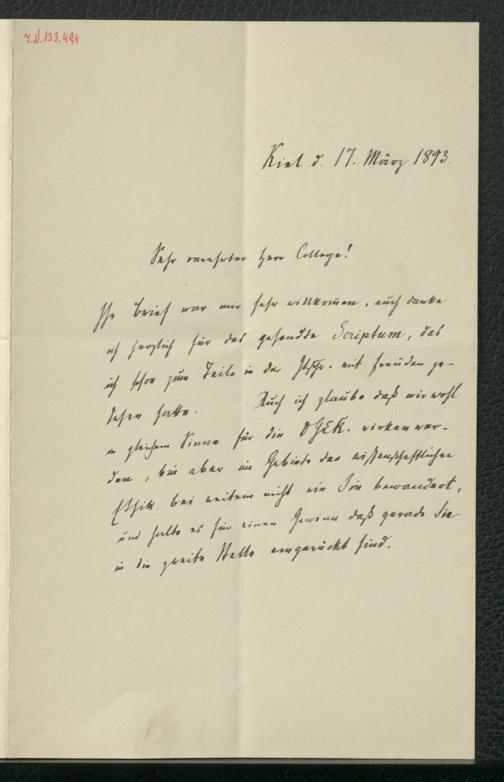 J.N. 133.494
Kiel d. 17. März 1893.
Sehr verehrter Herr College!
Ihr Brief war mir sehr willkommen, auch danke
ich herzlich für das gesandte Scriptum, das
ich schon zum Teile in der Ztschr. mit Freuden ge-
lesen hatte. Auch ich glaube daß wir wohl
in gleichem Sinne für die DGEK. wirken wer-
den, bin aber im Gebiete der wissenschaftlichen
Ethik bei weitem nicht wie Sie bewandert,
und halte es für einen Gewinn daß gerade Sie
in die zweite Stelle eingerückt sind.